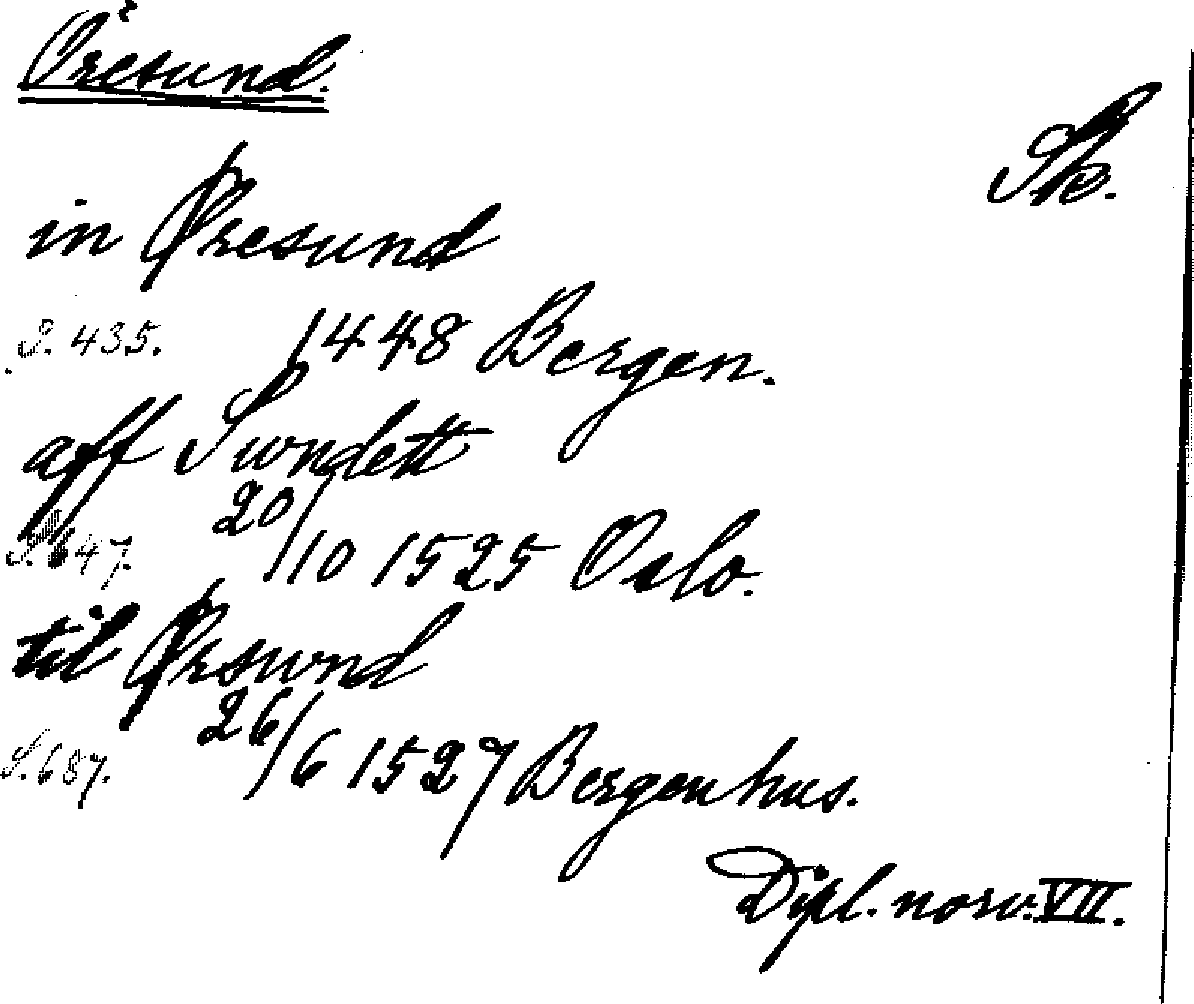 Öresund.
Sk.
in Øresund
S. 435. 1448 Bergen.
aff Swndett
S. 647. 20/10 1525 Oslo.
til Ørswnd
S. 687. 26/6 1527 Bergenhus.
Dipl. norv. VII.